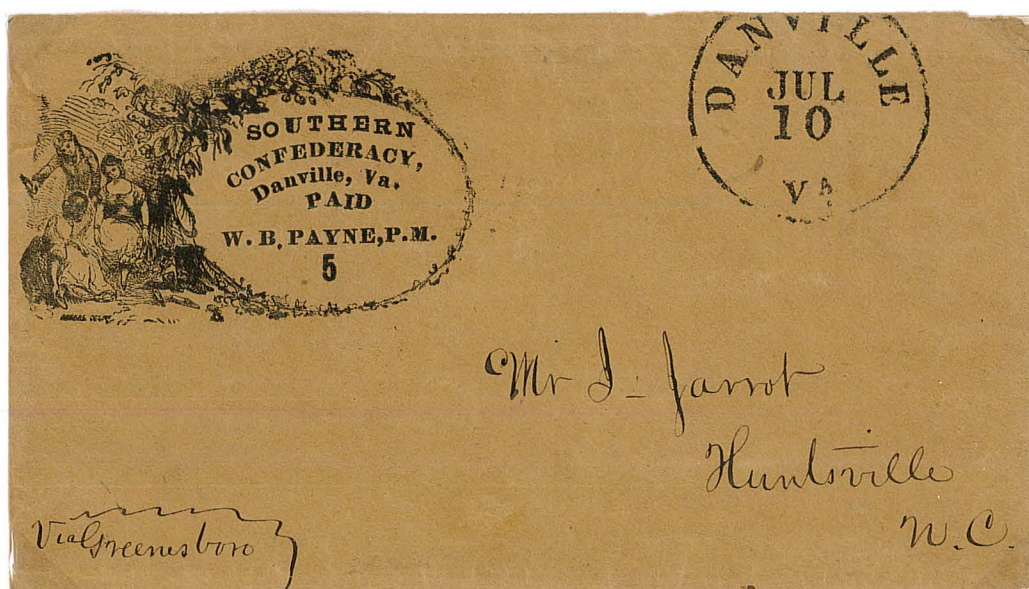 SOUTHERN
CONFEDERACY,
Danville, Va.
PAID
W. B. PAYNE, P. M.
5
DANVILLE
JUL
10
VA
Mr I - Jarrot
Huntsville
N. C.
Via Greensboro